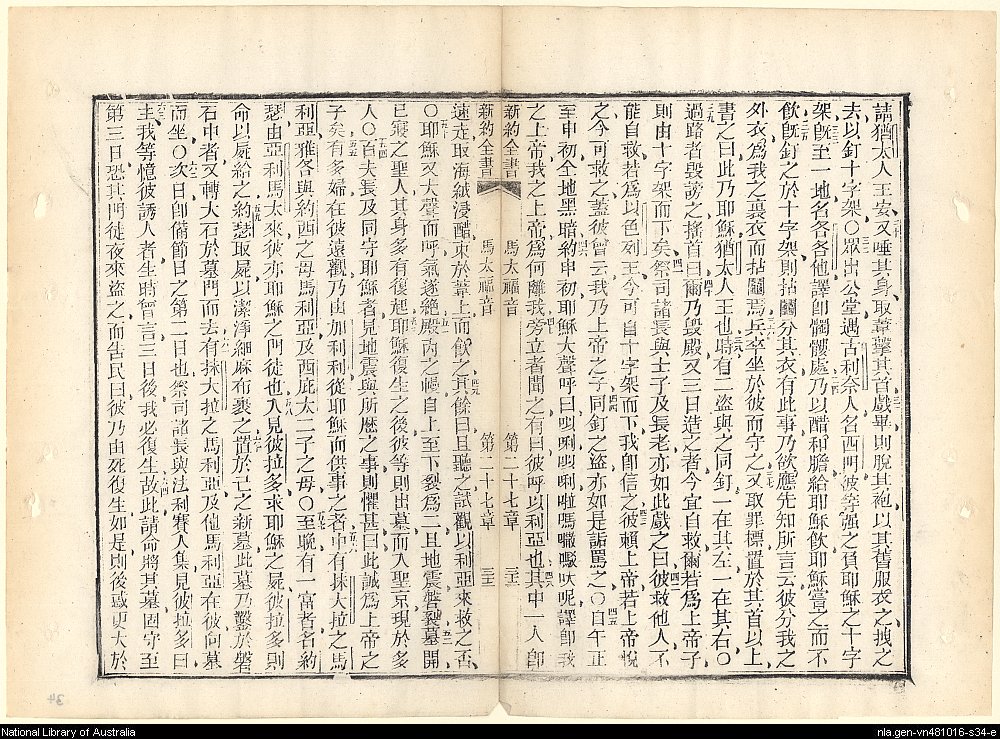 請猶太人王安又唾其身取葦擊其首戲畢則脫其袍以其舊服衣之拽之
去以釘十字架〇眾出公堂遇古利奈人名西門彼等强之負耶穌之十字
架旣至一地名各各他譯卽髑髏處乃以醋和膽給耶穌飲耶穌嘗之而不
飲旣釘之於十字架則拈鬮分其衣有此事乃欲應先知所言云彼分我之
外衣爲我之裏衣而拈鬮焉兵卒坐於彼而守之又取罪標置於其首以上
書之曰此乃耶穌猶太人王也時有二盜與之同釘一在其左一在其右〇
過路者毀謗之搖首曰爾乃毀殿又三日造之者今宜自救爾若爲上帝子
則由十字架而下矣祭司諸長與士子及長老亦如此戲之曰彼救他人不
能自救若爲以色列王今可自十字架而下我卽信之彼賴上帝若上帝悅
之今可救之蓋彼曾云我乃上帝之子同釘之盜亦如是詬罵之〇自午正
至申初全地黑暗約申初耶穌大聲呼曰
之上帝我之上帝爲何離我旁立者聞之有曰彼呼以利亞也其中一人卽
新約全書 馬太福音 第二十七章 三十三
新約全書 馬太福音 第二十七章 三十三
速走取海絨浸醋束於葦上而飲之其餘曰且聽之試觀以利亞來救之否
〇耶穌又大聲而呼氣遂絕殿內之幔自上至下裂爲二且地震磐裂墓開
已寢之聖人其身多有復起耶穌復生之後彼等則出墓而入聖京現於多
人〇百夫長及同守耶穌者見地震與所歷之事則懼甚曰此誠爲上帝之
子矣有多婦在彼遠觀乃由加利利從耶穌而供事之者中有抹大拉之馬
利亞雅各與約西之母馬利亞及西庇太二子之母〇至晚有一富者名約
瑟由亞利馬太來彼亦耶穌之門徒也入見彼拉多求耶穌之屍彼拉多則
命以屍給之約瑟取屍以潔淨細麻布裹之置於己之新墓此墓乃鑿於磐
石中者又轉大石於墓門而去有抹大拉之馬利亞及他馬利亞在彼向墓
而坐〇次日卽備節日之第二日也祭司諸長與法利賽人集見彼拉多曰
主我等憶彼誘人者生時曾言三日後我必復生故此請命將其墓固守至
第三日恐其門徒夜來盜之而告民曰彼乃由死復生如是則後惑更大於
34
National Library of Australia
nla.gen-vn481016-s34-e